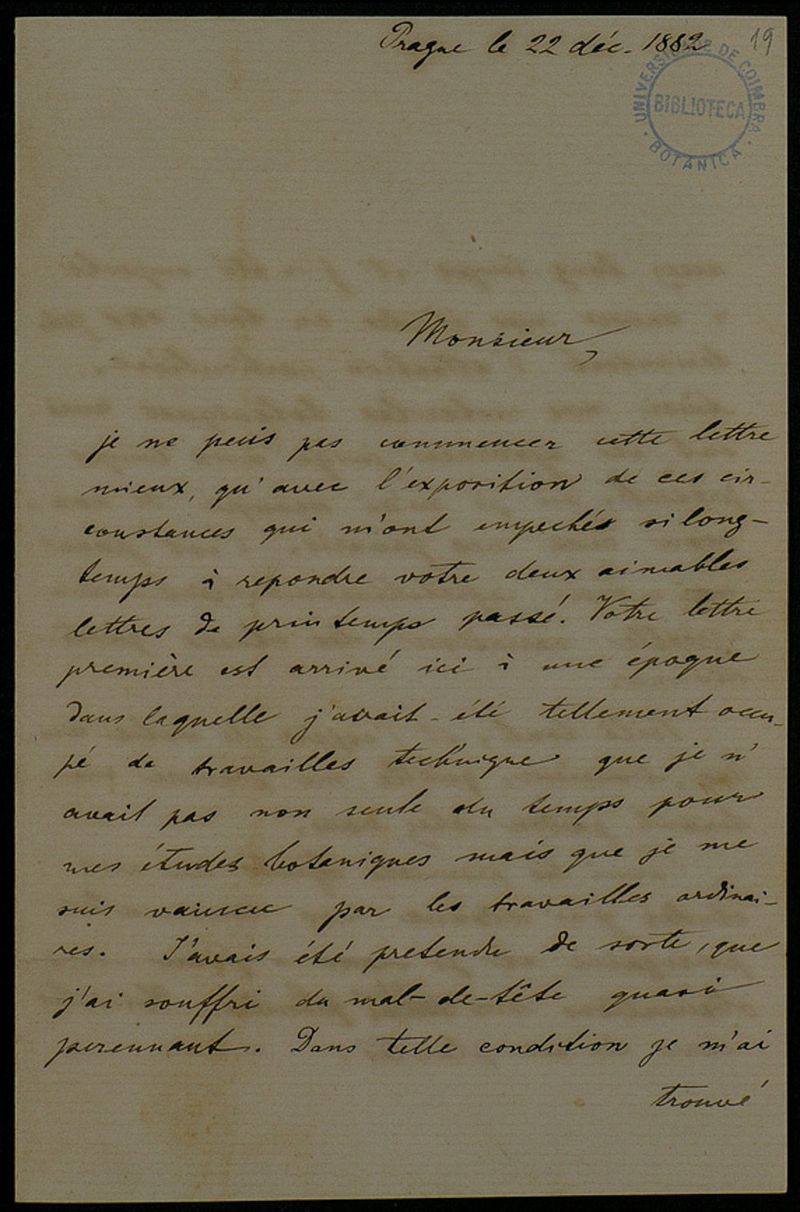 Prague le 22 déc. 1882
19
UNIVERSIDADE DE COIMBRA
BIBLIOTECA
BOTANICA
Monsieur,
je ne peuis pas commencer cette lettre
mieux, qu'avec l'exposition de ces cir-
constances qui m'ont empechés si long-
temps à repondre votre deux aimables
lettres de printemps passé. Votre lettre
première est arrivé ici à une époque
dans laquelle j'avait été tellement occu-
pé de travailles technique que je n'
avait pas non seule du temps pour
mes études botaniques mais que je me
suis vaincu par les travailles ordinai-
res. J'avais été pretendu de sorte, que
j'ai souffri du mal-de-tête quasi
perennant. Dans telle condition je m'ai
trouvé